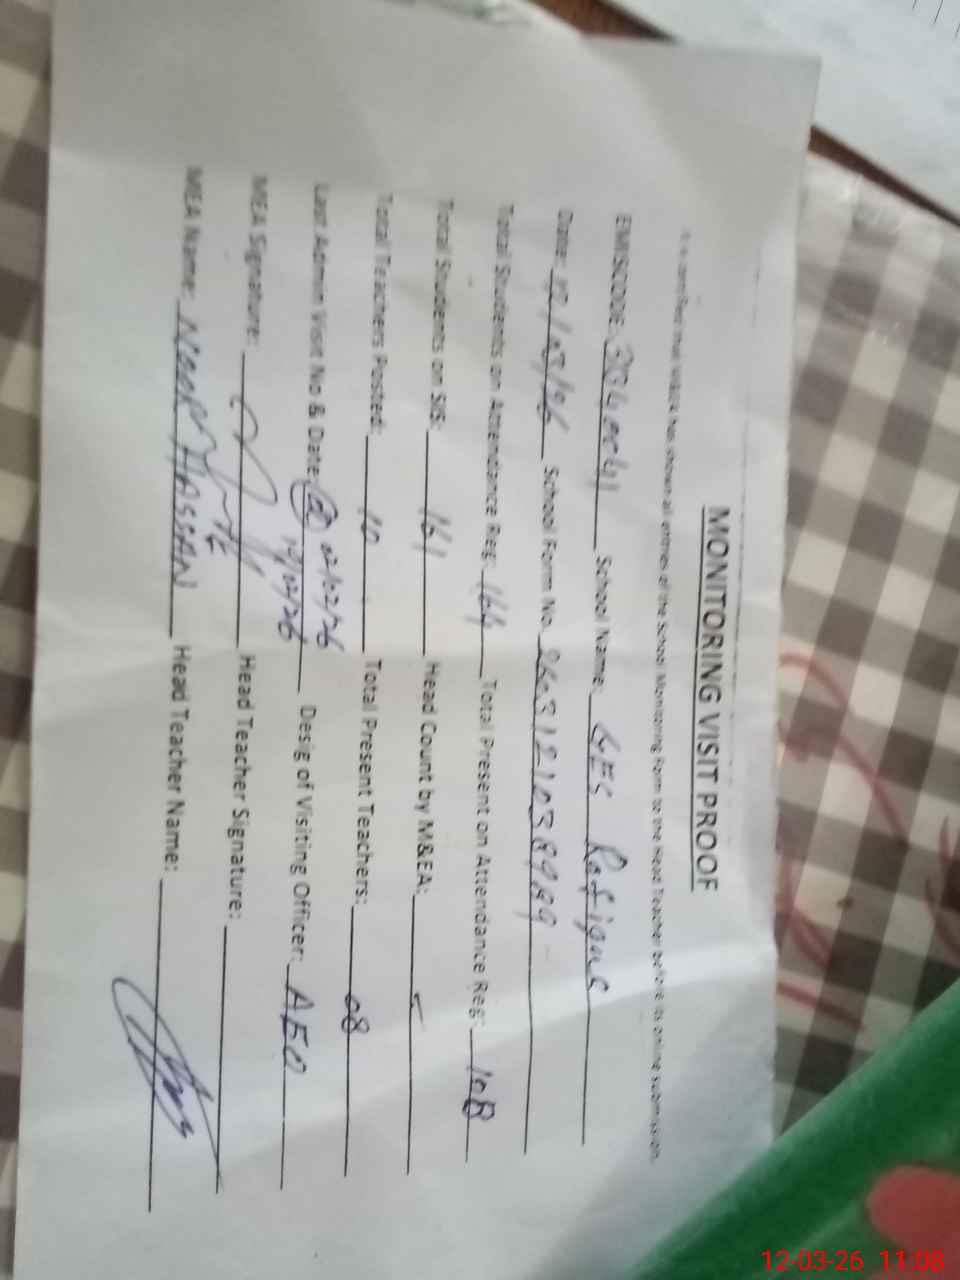 MONITORING VISIT PROOF
It is certified that M&EA has shown all entries of the School Monitoring Form to the Head Teacher before its online submission.
EMISCODE: School Name: GES Rafique
Date: School Form No.
Total Students on Attendance Reg: 164 Total Present on Attendance Reg:
Total Students on SIS: 161 Head Count by M&EA:
Total Teachers Posted: 10 Total Present Teachers: 08
Last Admin Visit No & Date: 02/02/26 Desig of Visiting Officer: AEO
MEA Signature: Head Teacher Signature:
MEA Name: HASSAN Head Teacher Name:
12-03-26 11:08